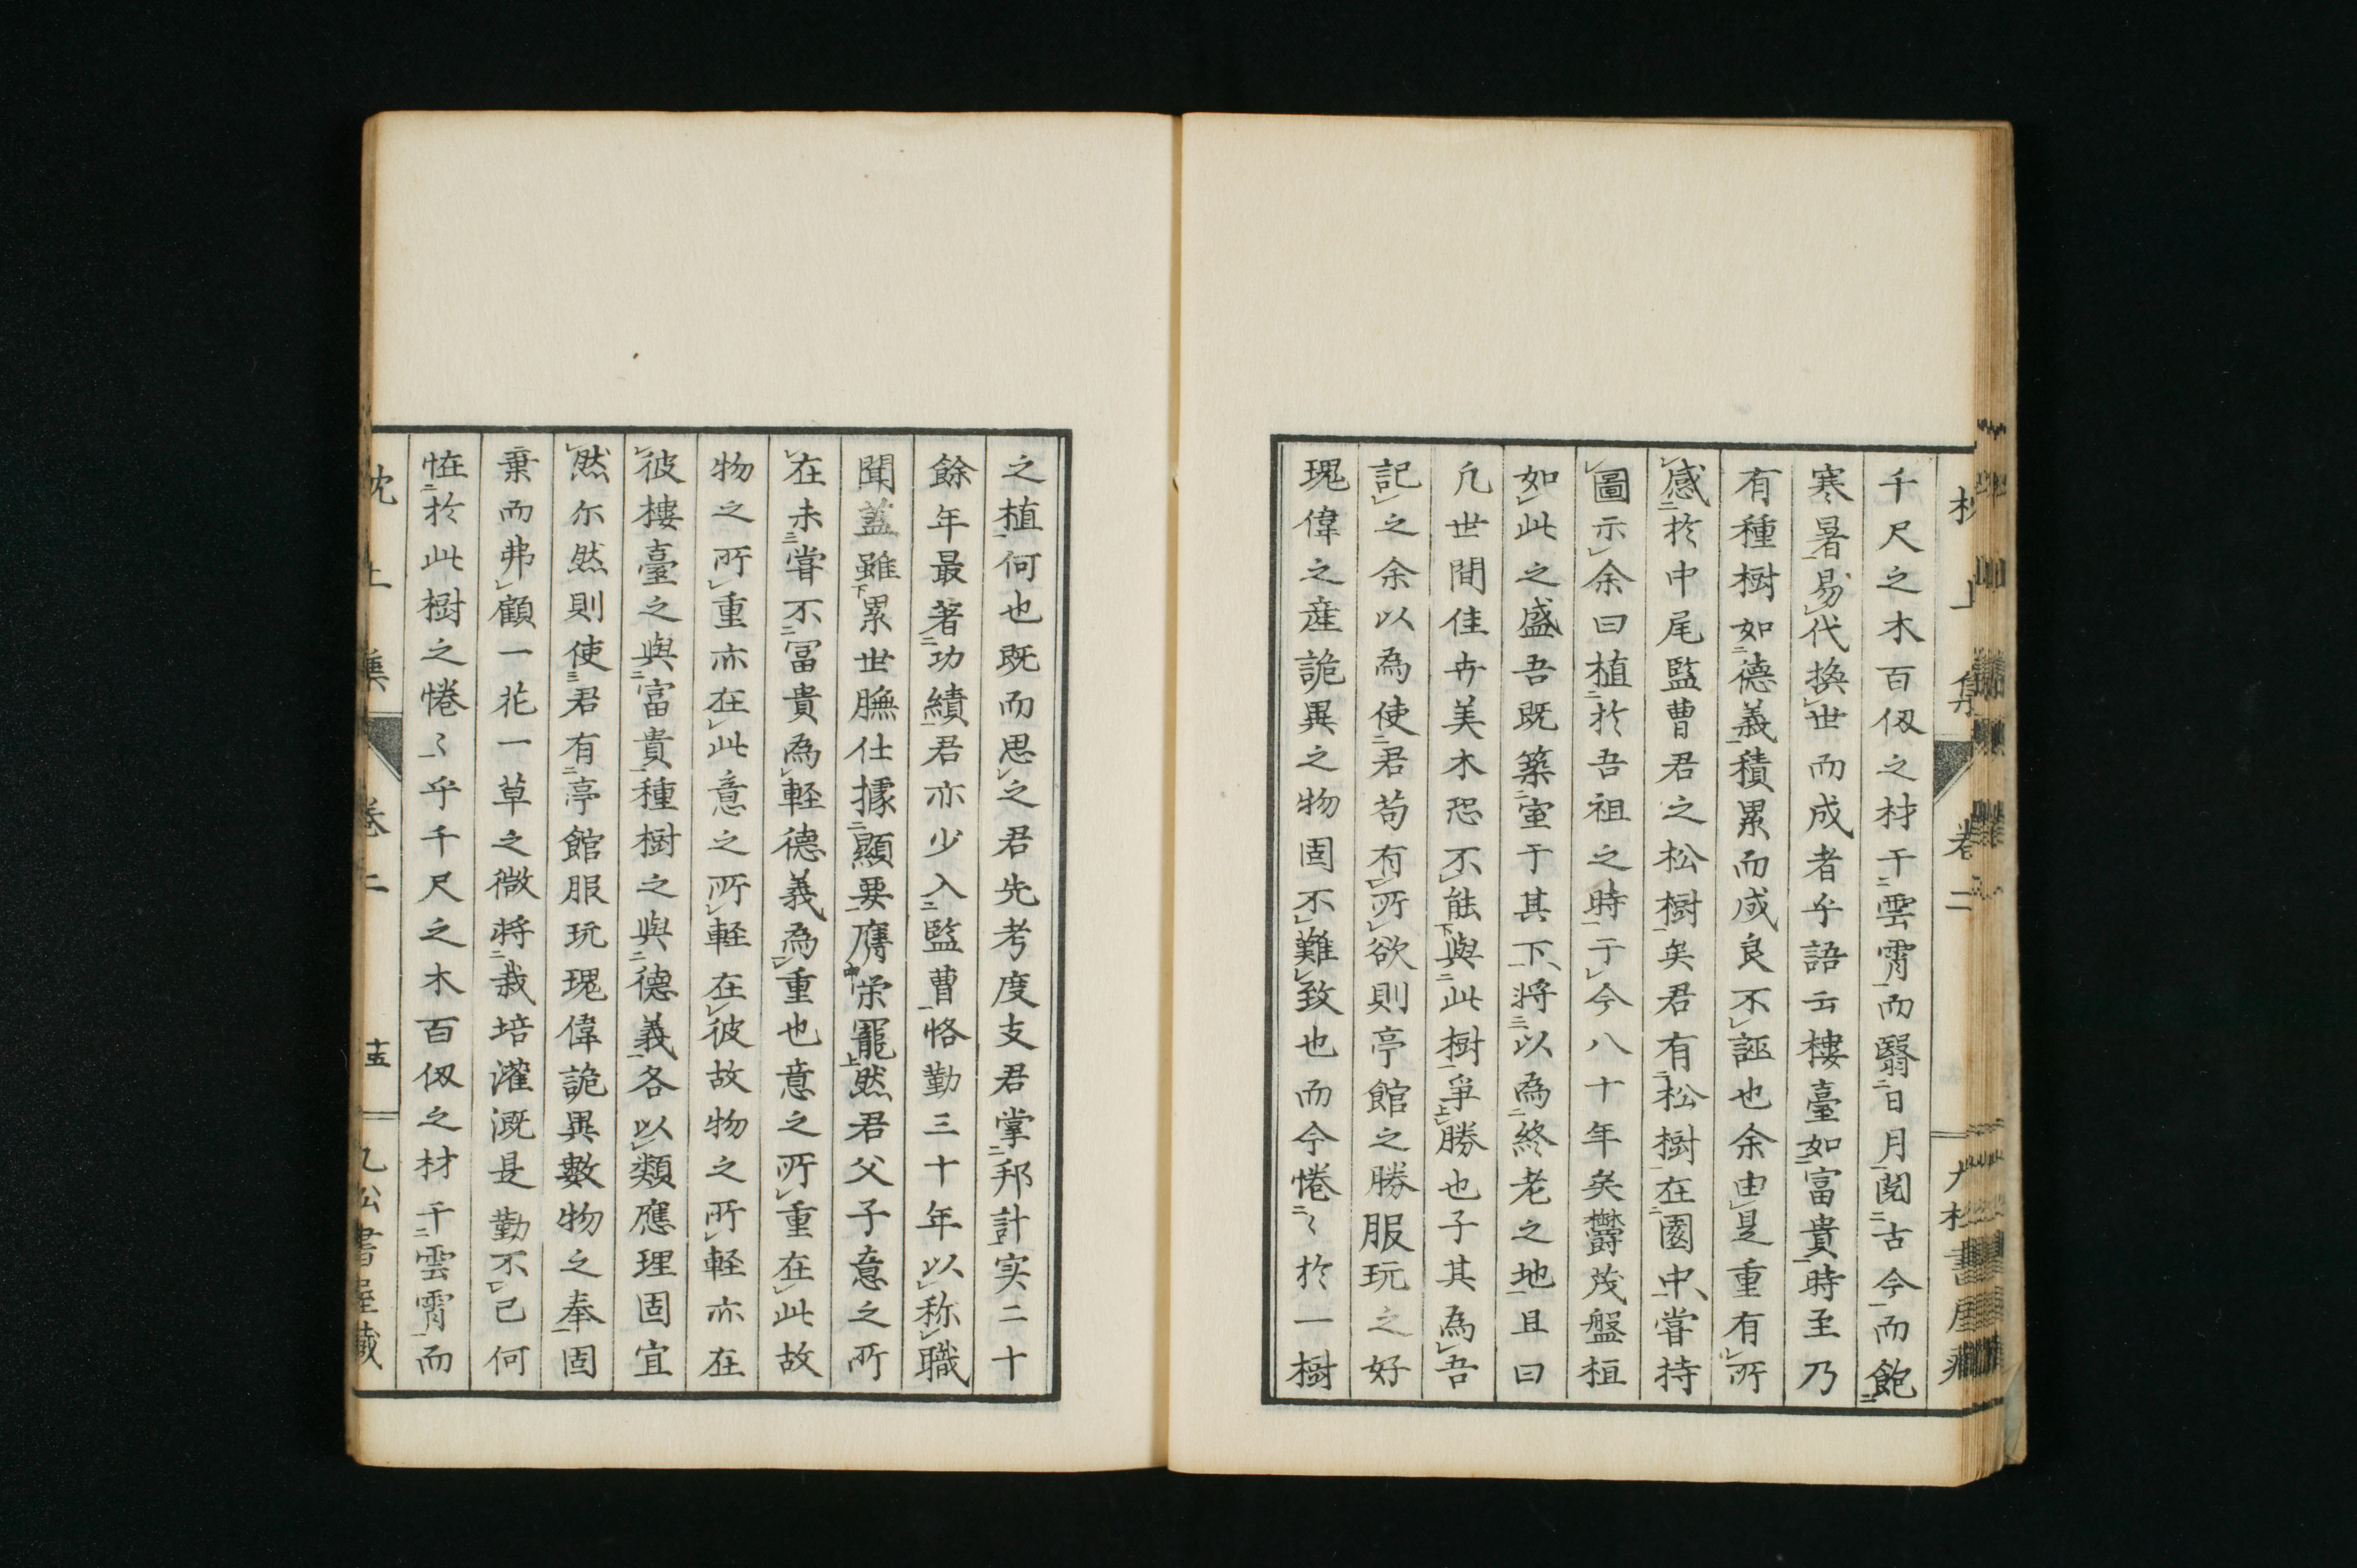 千尺之木百仭之材干雲霄而翳日月閲古今而飽
寒暑易代換世而成者乎語云樓臺如富貴時至乃
有種樹如德義積累而成良不誣也余由是重有所
感於中尾監曹君之松樹矣君有松樹在園中嘗持
圖示余曰植於吾祖之時于今八十年矣欝茂盤桓
如此之盛吾既築室于其下將以為終老之地且曰
凡世間佳卉美木恐不能與此樹爭勝也子其為吾
記之余以為使君苟有所欲則亭館之勝服玩之好
瑰偉之産詭異之物固不難致也而今惓〻於一樹
之植何也既而思之君先考度支君掌邦計実二十
餘年最著功績君亦少入監曹恪勤三十年以称職
聞蓋雖累世膴仕據顯要膺栄寵然君父子意之所
在未嘗不冨貴為軽德義為重也意之所重在此故
物之所重亦在此意之所軽在彼故物之所軽亦在
彼樓臺之與富貴種樹之與德義各以類應理固宜
然尓然則使君有亭館服玩瑰偉詭異數物之奉固
棄而弗顧一花一草之微將栽培灌漑是勤不已何
恠於此樹之惓〻乎千尺之木百仭之材干雲霄而
枕上集 卷二 十五 九松書屋藏